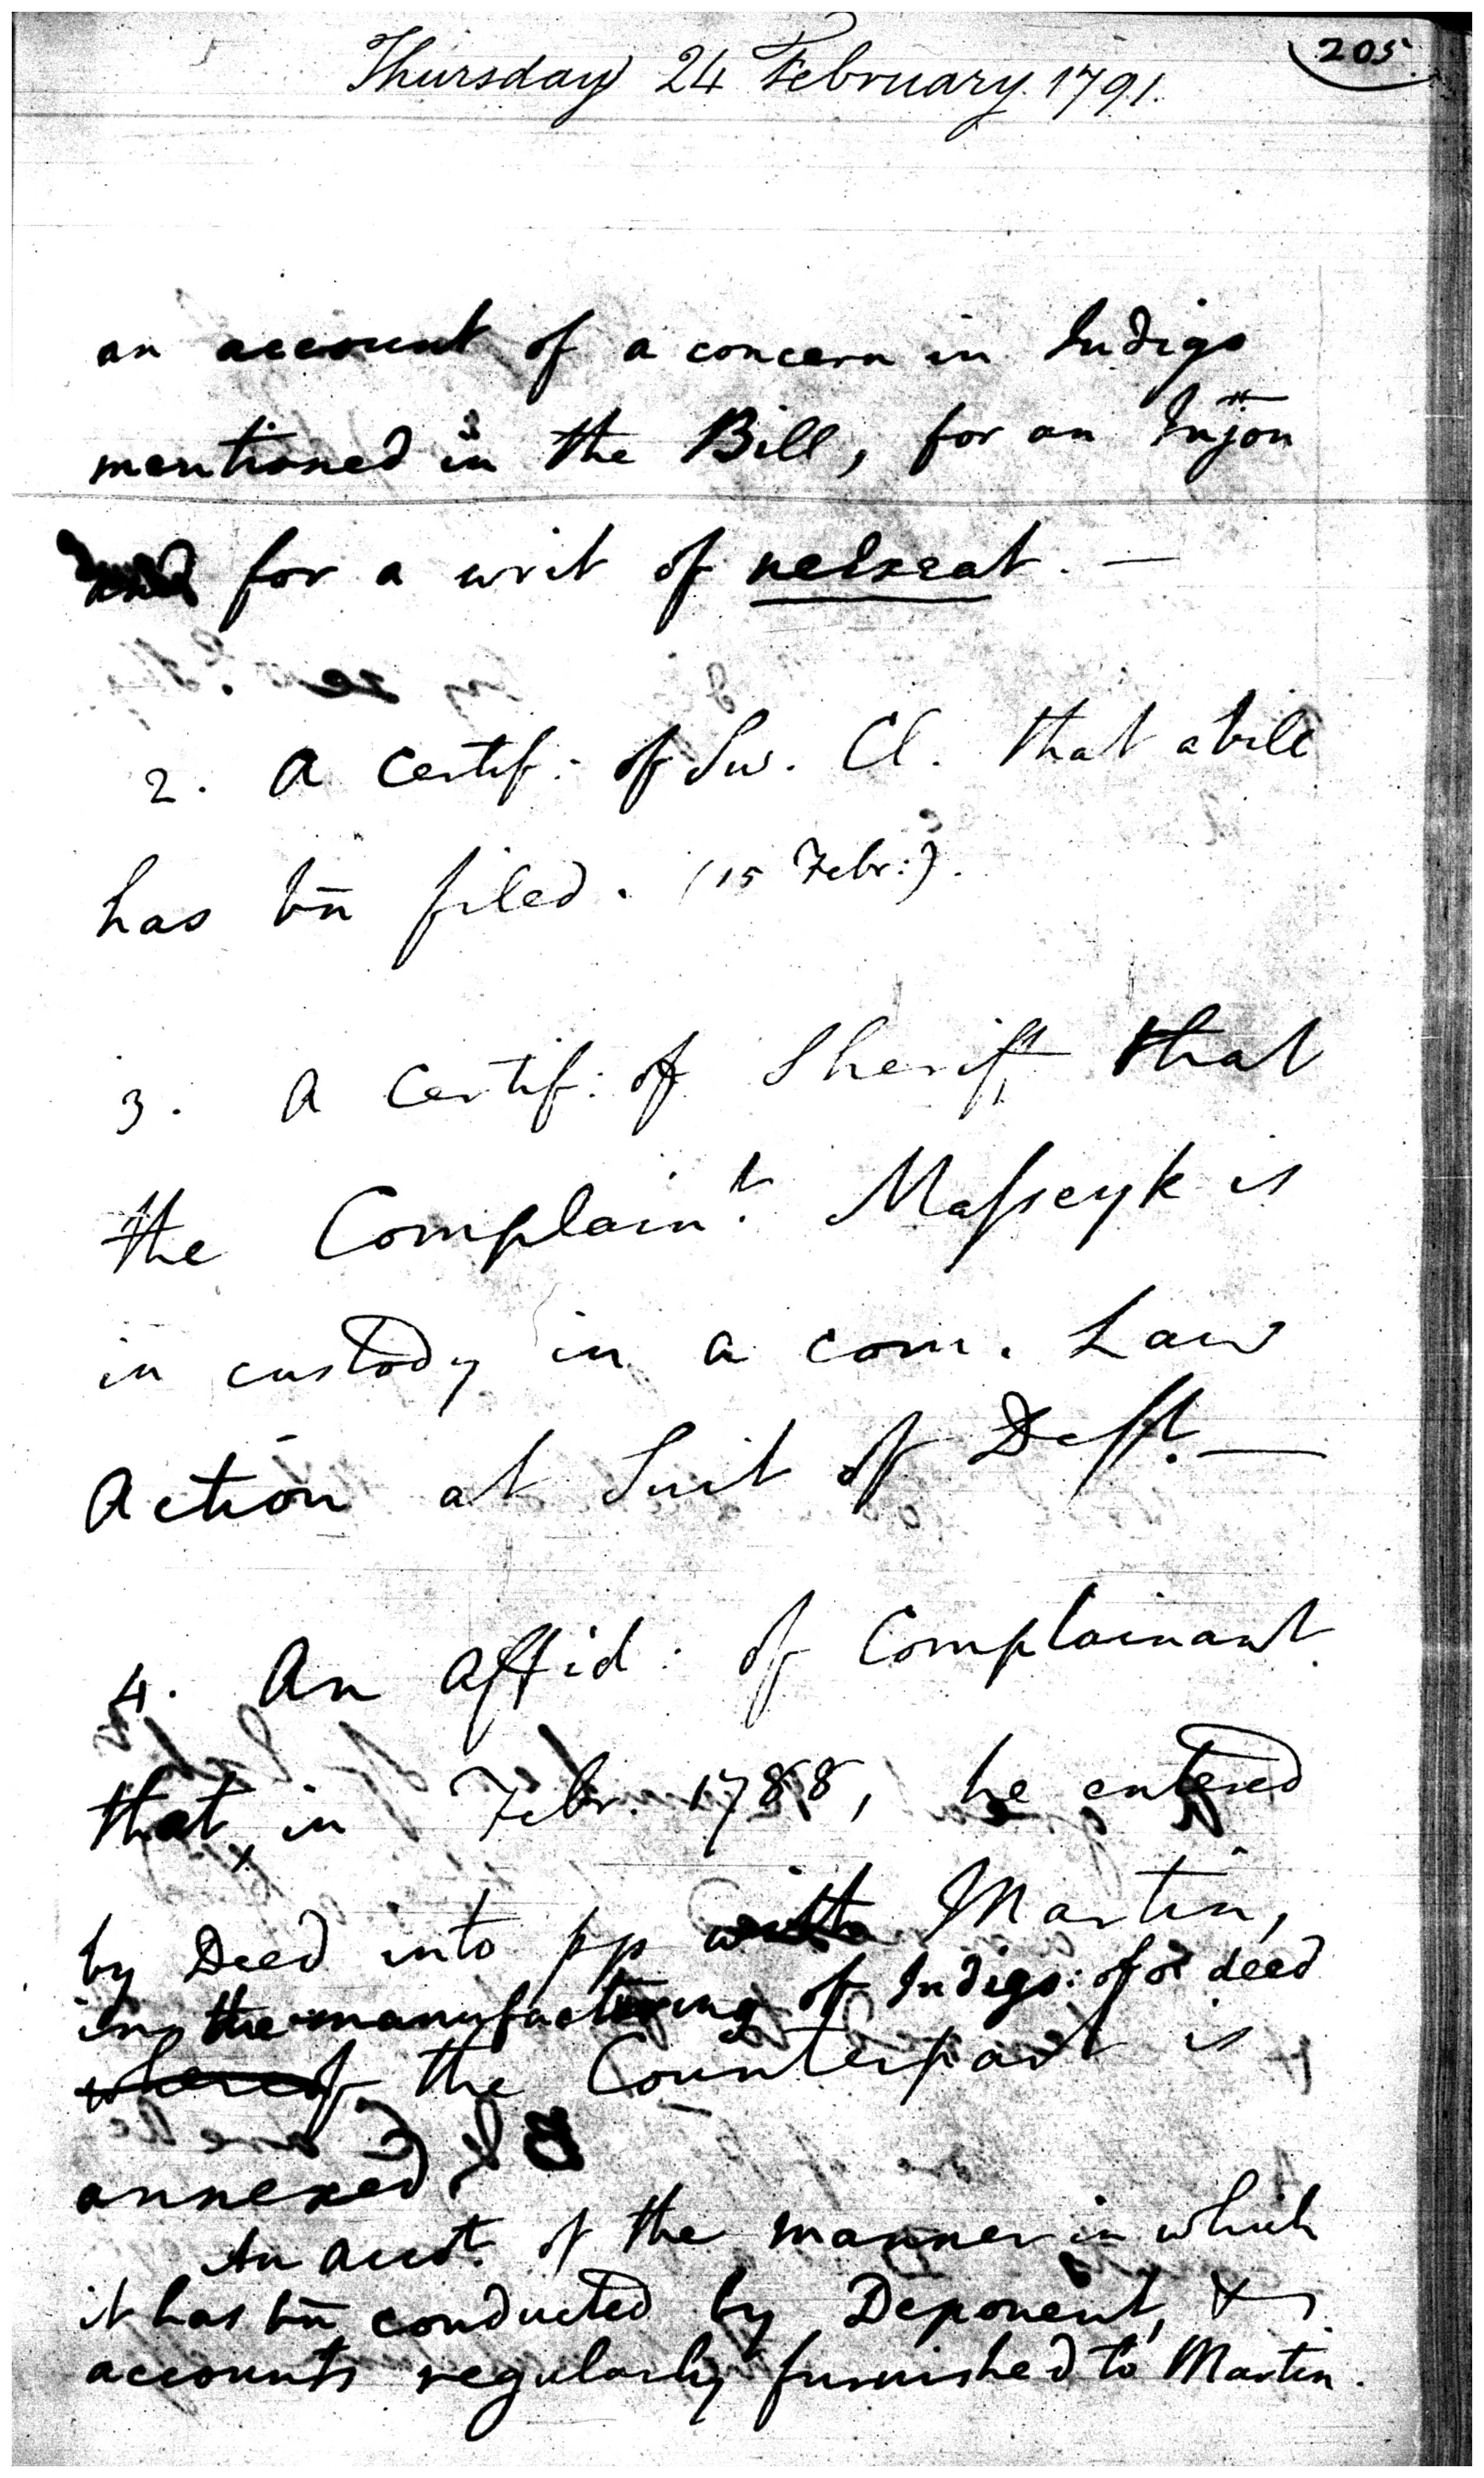 205
Thursday 24 February. 1791.
an account of a concern in Indigo
mentioned in the Bill, for an Injon
for a writ of neexeat. —
2. A Certif: of Sw. Cl. that a bill
has bn̄ filed. (15 Febr:).
3. A Certif: of Sheriff that
the Complain.t Masseyk is
in custody in a com. Law
Action at Suit of Deft. —
4. An Affid: of Complainant
that in Febr. 1788, he entered
by Deed into pp with Martin,
in the manufacturing of Indigo: of deed
whereof the Counterpart is
annexed
An Acct. of the manner in which
it has bn̄ conducted by Deponent, &
accounts regularly furnished to Martin.